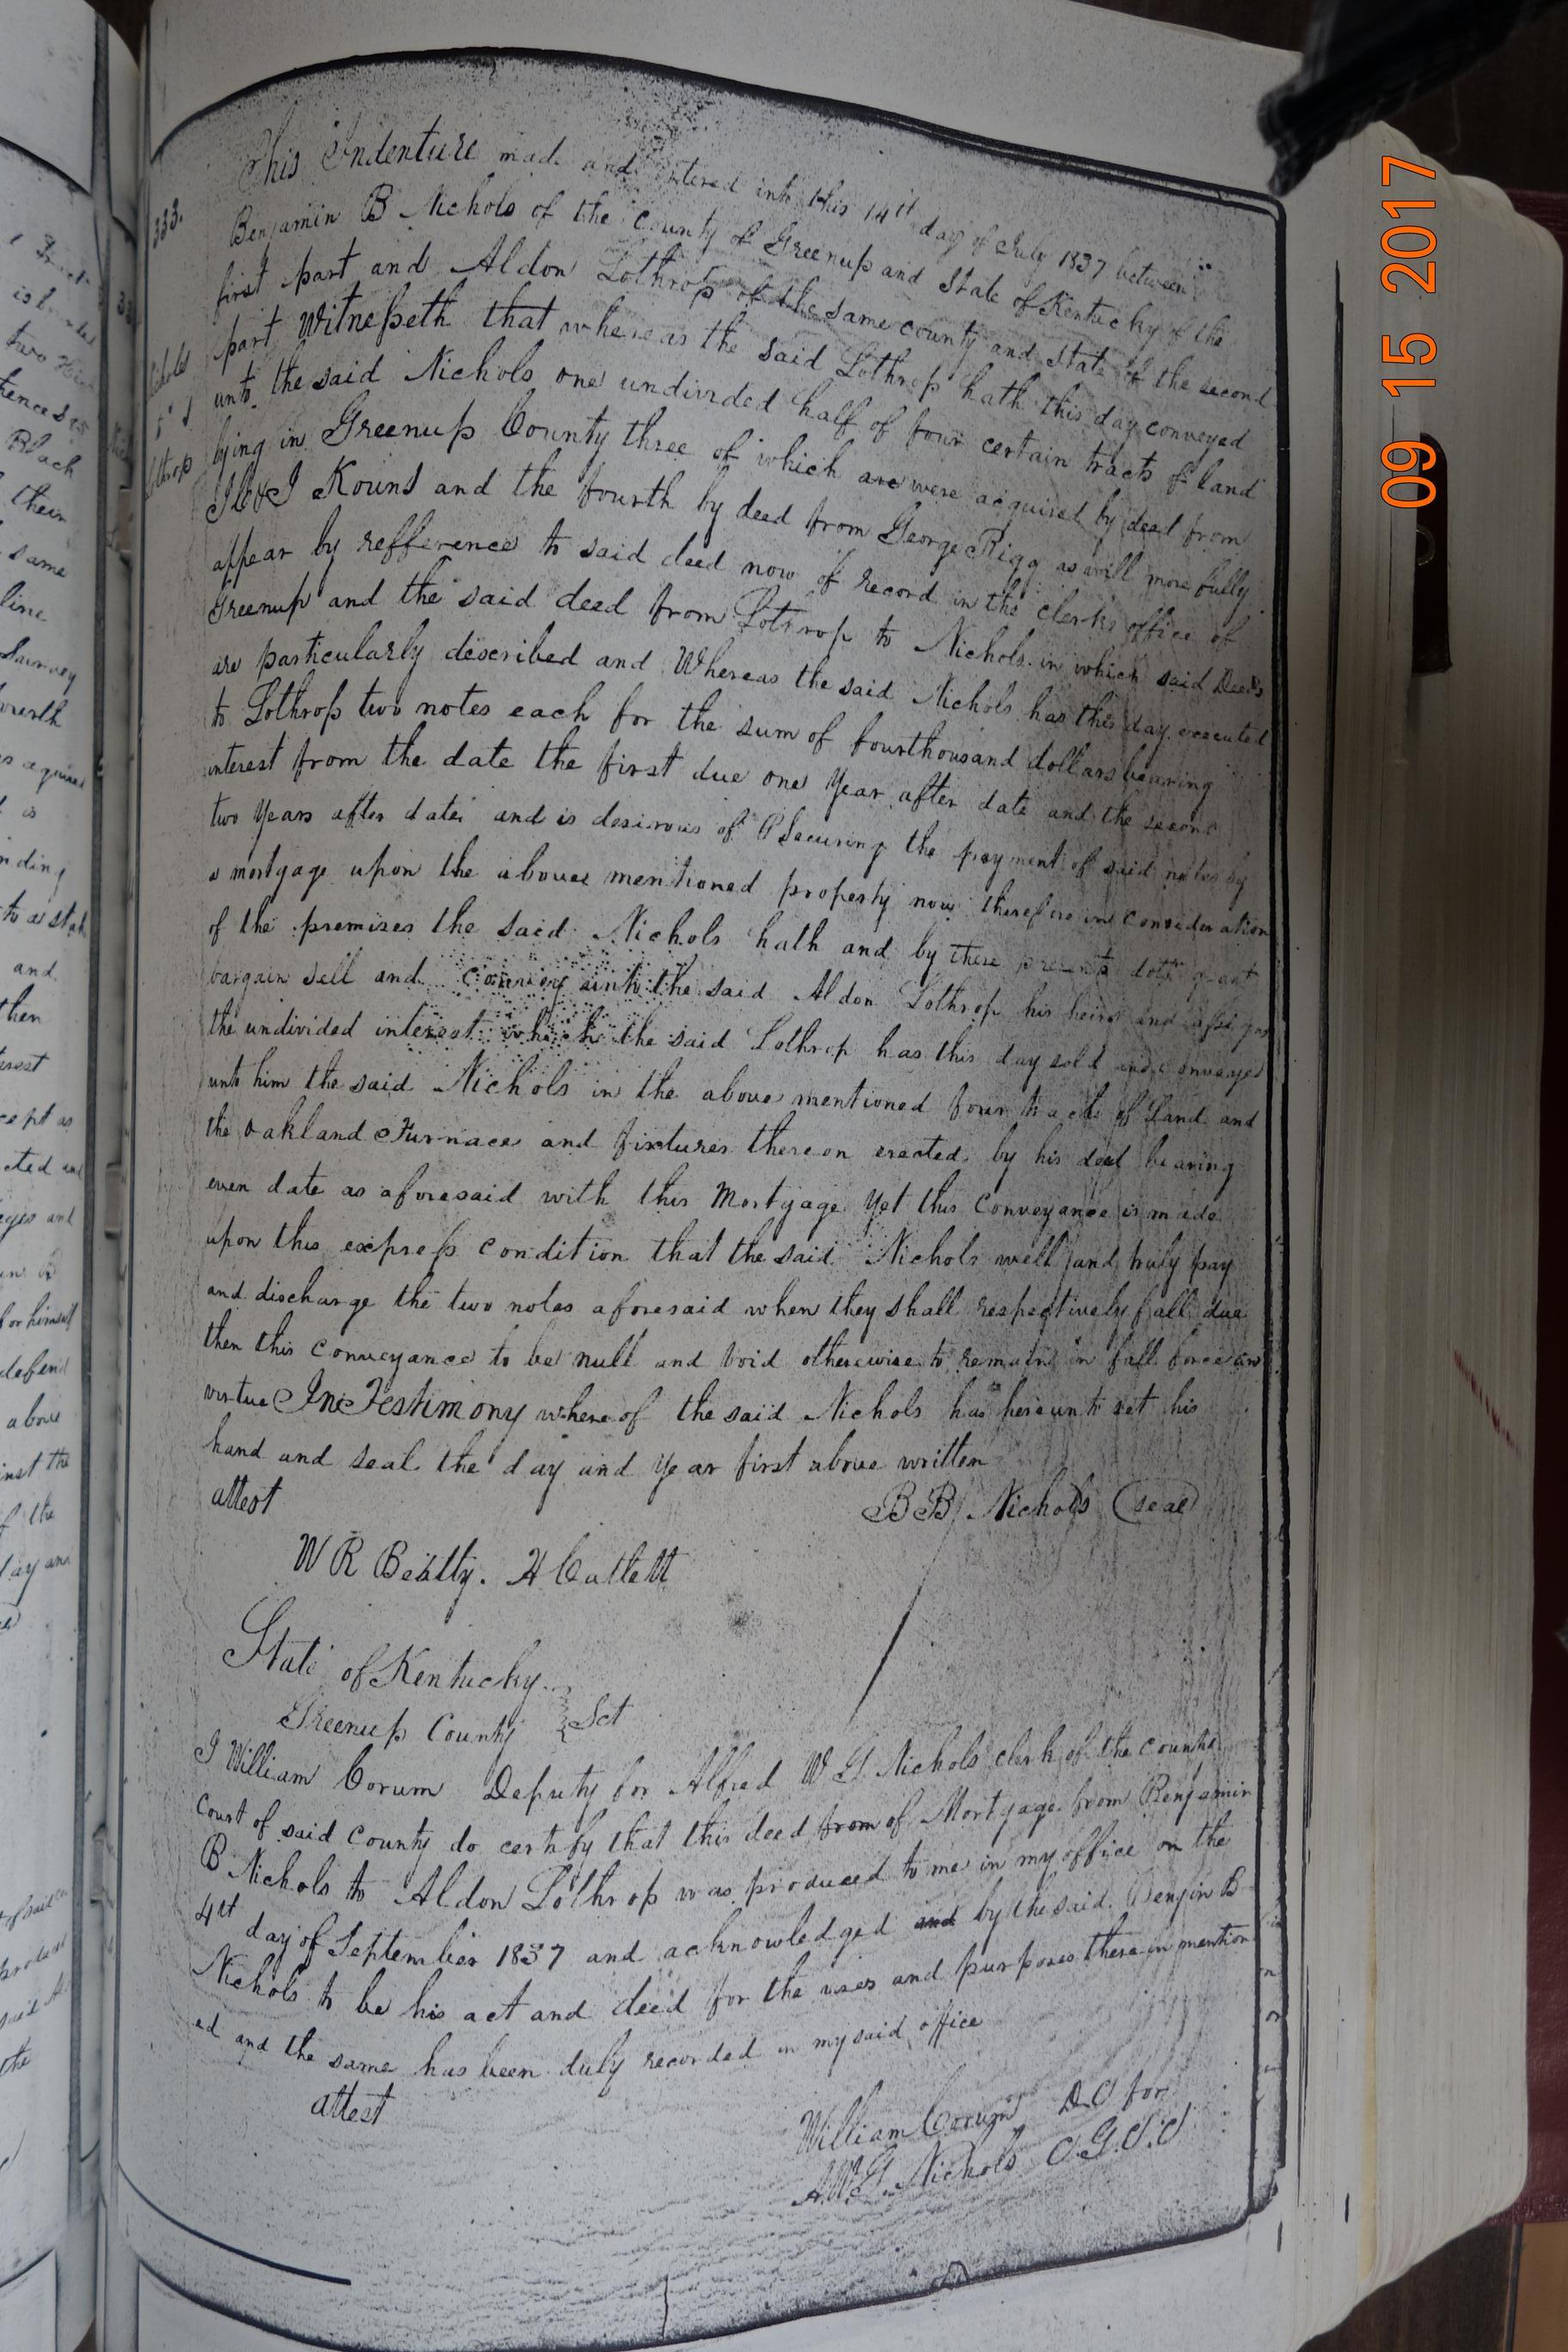 333.
This Indenture made and entered into this 14th day of July 1837 between
Benjamin B Nichols of the County of Greenup and State of Kentucky of the
first part and Aldon Lothrop of the same county and State of the second
part Witnesseth that whereas the said Lothrop hath this day conveyed
unto the said Nichols one undivided half of four certain tracts of land
lying in Greenup County three of which are were acquired by deed from
Kouns and the fourth by deed from George Rigg as will more fully
appear by refference to said deed now of record in the clerks office of
Greenup and the said deed from Lothrop to Nichols in which said Deeds
are particularly described and Whereas the said Nichols has this day executed
to Lothrop two notes each for the sum of fourthousand dollars bearing
interest from the date the first due one year after date and the second
two years after date and is desirous of Securing the payment of said notes by
a mortgage upon the above mentioned property now therefore in consideration
of the premises the said Nichols hath and by these presents doth grant
bargain sell and convey unto the said Aldon Lothrop his heirs and assigns
the undivided interest which the said Lothrop has this day sold and conveyed
unto him the said Nichols in the above mentioned four tracts of Land and
the oakland Furnace and fixtures thereon erected by his deed bearing
even date as aforesaid with this Mortgage yet this Conveyance is made
upon this express condition that the said Nichols well and truly pay
and discharge the two notes aforesaid when they shall respectively fall due
then this conveyance to be null and void otherwise to remain in full force and
virtue In Testimony where of the said Nichols has hereunto set his
hand and seal the day and year first above written
attest
B B Nichols (seal)
W R Beatty. H Catlett
State of Kentucky
Greenup County } Sct
I William Corum Deputy for Alfred W G Nichols clerk of the county
court of said county do certify that this deed from of Mortgage from Benjamin
B Nichols to Aldon Lothrop was produced to me in my office on the
4th day of September 1837 and acknowledged and by the said Benjin B
Nichols to be his act and deed for the uses and purposes therein mention
ed and the same has been duly recorded in my said office
attest
William Corum D.C for
A.W.G. Nichols C.G.C.C
09 15 2017